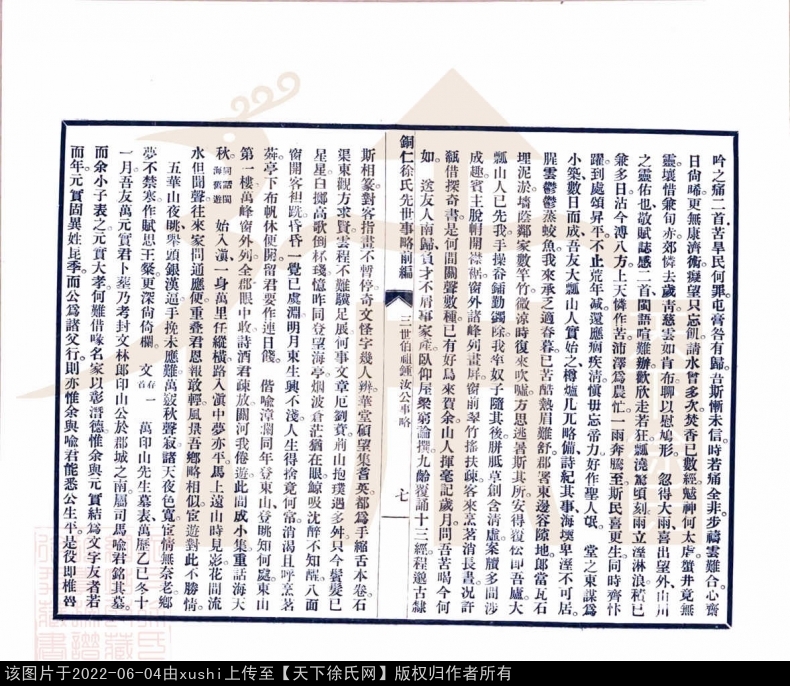 吟之痛二首苦旱民何罪屯膏咎有歸吾斯慚未信時若痛全非步禱雲難合心齋
日尙晞更無康濟術擬望只忘飢請水曾多次焚香已數經魃神何太虐蟹井竟無
靈壤借兼旬亦郊憐去歲靑慈雲如肯布聊以慰鳩形 忽得大雨喜出望外山川
之靈佑也敬賦誌感二首閭語喧難辦歡欣走若狂瓢澆驚頃刻雨立溼淋浪積已
兼多日沾今溥八方上天憐作苦沛澤爲農忙一雨奔騰至斯民喜更生同時齊忭
躍到處頌昇平不止荒年減還應病疾淸愼毋忘帝力好作聖人氓 堂之東謀爲
小築數日而成吾友大瓢山人實始之樽爐几兀略備詩紀其事海壖卑溼不可居
腥雲鬱鬱蒸蛟魚我來承之適春暮已苦酷熱眉難舒郡署東邊容隙地郎當瓦石
埋泥淤墻蔭鄰家數竿竹微涼時復來吹噓方思逃暑斯其所安得覆忪卽吾廬大
瓢山人已先我手操畚鍤勤钁除我牟奴子隨其後胼胝草創含淸虛案牘多間涉
成趣賓主脫帽開襟裾窗外諸峰列畫屛窗前翠竹搖扶疎客來烹茗消長晝况許
瓻借探奇書是何間關聲數種已有好鳥來賀余山人揮毫記歲月問吾苦喝今何
如 送友人南歸負才不屑事家產臥仰屋梁窮論撰九齡覆誦十三經程邈古隸
銅仁徐氏先世事略前編 三世伯祖鍾汝公事略 七
斯相篆對客指畫不暫停奇文怪字幾人辨華堂顧望集耆英都爲手縮舌本卷石
渠東觀方求賢雲程不難驥足展何事文章厄劉賁荊山抱璞遇多舛只今鬢髮已
星星白擲高歌倒杯琖憶昨同登望海亭烟波倉茫猶在眼鯨吸沈醉不知醒八面
窗開客袒跣昏昏一覺已虞淵明月東生興不淺人生得捨竟何常消渴且呼烹茗
荈亭下布帆休便開留君要作連日餞 偕喩漳瀾同年登東山登眺知何處東山
第一樓萬峰窗外列全郡眼中收詩酒君疎放關河我倦遊此間成小集重話海天
秋同話閩海舊遊 始入滇一身萬里任縱橫路入滇中夢亦平馬上遠山時見影花間流
水但聞聲往來家問通應便重叠君恩報敢輕風景吾鄉略相似宦遊對此不勝情
五華山夜眺舉頭銀漢逼手挽未應難萬竅秋聲寂諸天夜色寬宦情無奈老鄕
夢不禁寒作賦思王粲更深尙倚欄 文存一首 萬印山先生墓表萬歷乙巳冬十
一月吾友萬元實君卜葬乃考封文林郎印山公於郡城之南屬司馬喩君銘其墓
而余小子表之元實大孝何難借喙名家以彰潛德惟余與元實結爲文字友者若
而年元實固異姓昆季而公爲諸父行則亦惟余與喩君能悉公生平是役卽椎魯
该图片于2022-06-04由xushi上传至【天下徐氏网】版权归作者所有